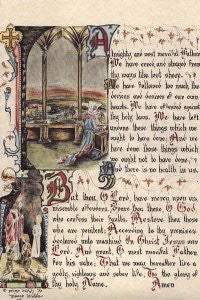 Almighty, and most merciful Father
We have erred and strayed from
thy ways like lost sheep.
We have followed too much the
devices and desires of our own
hearts. We have offended against
thy holy laws. We have left
undone those things which we
ought not to have done. And we
have done those things which
we ought not to have done. And
there is no health in us.
But thou, O Lord, have mercy upon us,
miserable offenders. Spare thou those, O God
who confess their faults. Restore thou those
who are penitent. According to thy promises
declared unto mankind In Christ Jesus our
Lord. And grant, O most merciful Father,
for his sake. That we may hereafter live a
godly, righteous, and sober life. To the glory of
thy holy Name. Amen